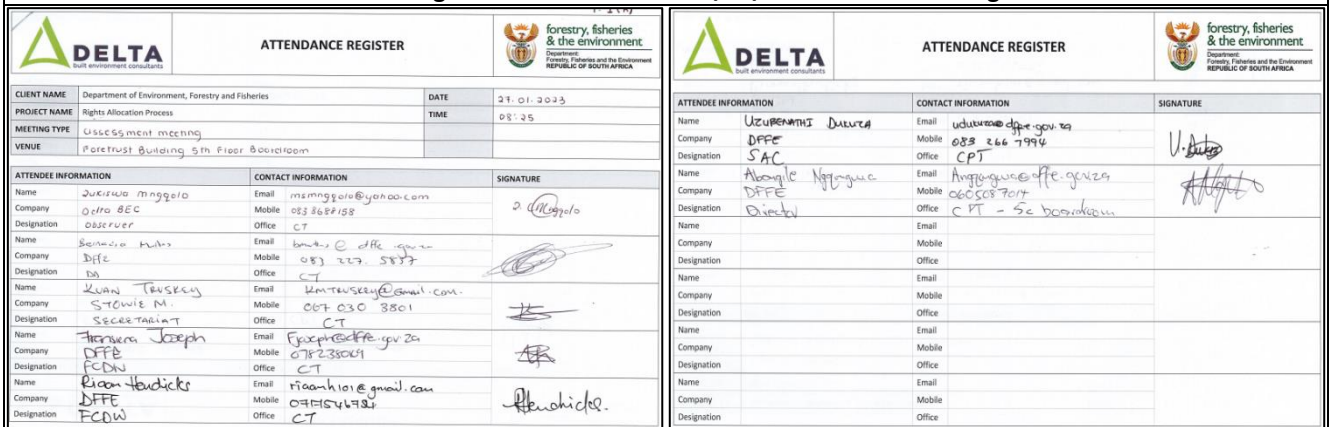 DELTA
built environment consultants
ATTENDANCE REGISTER
forestry, fisheries
& the environment
Department:
Forestry, Fisheries and the Environment
REPUBLIC OF SOUTH AFRICA
CLIENT NAME Department of Environment, Forestry and Fisheries DATE 27.01.2023
PROJECT NAME Rights Allocation Process TIME 08:25
MEETING TYPE Assessment meeting
VENUE Foretrust Building 5th Floor Boardroom
ATTENDEE INFORMATION CONTACT INFORMATION SIGNATURE
Name Email msmngqolo@yahoo.com
Company Delta BEC Mobile
Designation observer Office CT
Name Email
Company DFFE Mobile 083 227. 5837
Designation DA Office CT
Name KUAN TRUSKEY Email KMTRUSKEY@Gmail.com.
Company STOWIE M. Mobile 067 030 3801
Designation SECRETARIAT Office CT
Name Joseph Email Fjoseph@dffe.gov.za
Company DFFE Mobile
Designation Office CT
Name Riaan Hendicks Email riaanh101@gmail.com
Company DFFE Mobile
Designation FCDW Office CT
DELTA
built environment consultants
ATTENDANCE REGISTER
forestry, fisheries
& the environment
Department:
Forestry, Fisheries and the Environment
REPUBLIC OF SOUTH AFRICA
ATTENDEE INFORMATION CONTACT INFORMATION SIGNATURE
Name UZUBENATHI DUKUZA Email
Company DFFE Mobile 083 266 7994
Designation SAC Office CPT
Name Abongile Email
Company DFFE Mobile 0605087014
Designation Director Office CPT - 5c boardroom
Name Email
Company Mobile
Designation Office
Name Email
Company Mobile
Designation Office
Name Email
Company Mobile
Designation Office
Name Email
Company Mobile
Designation Office